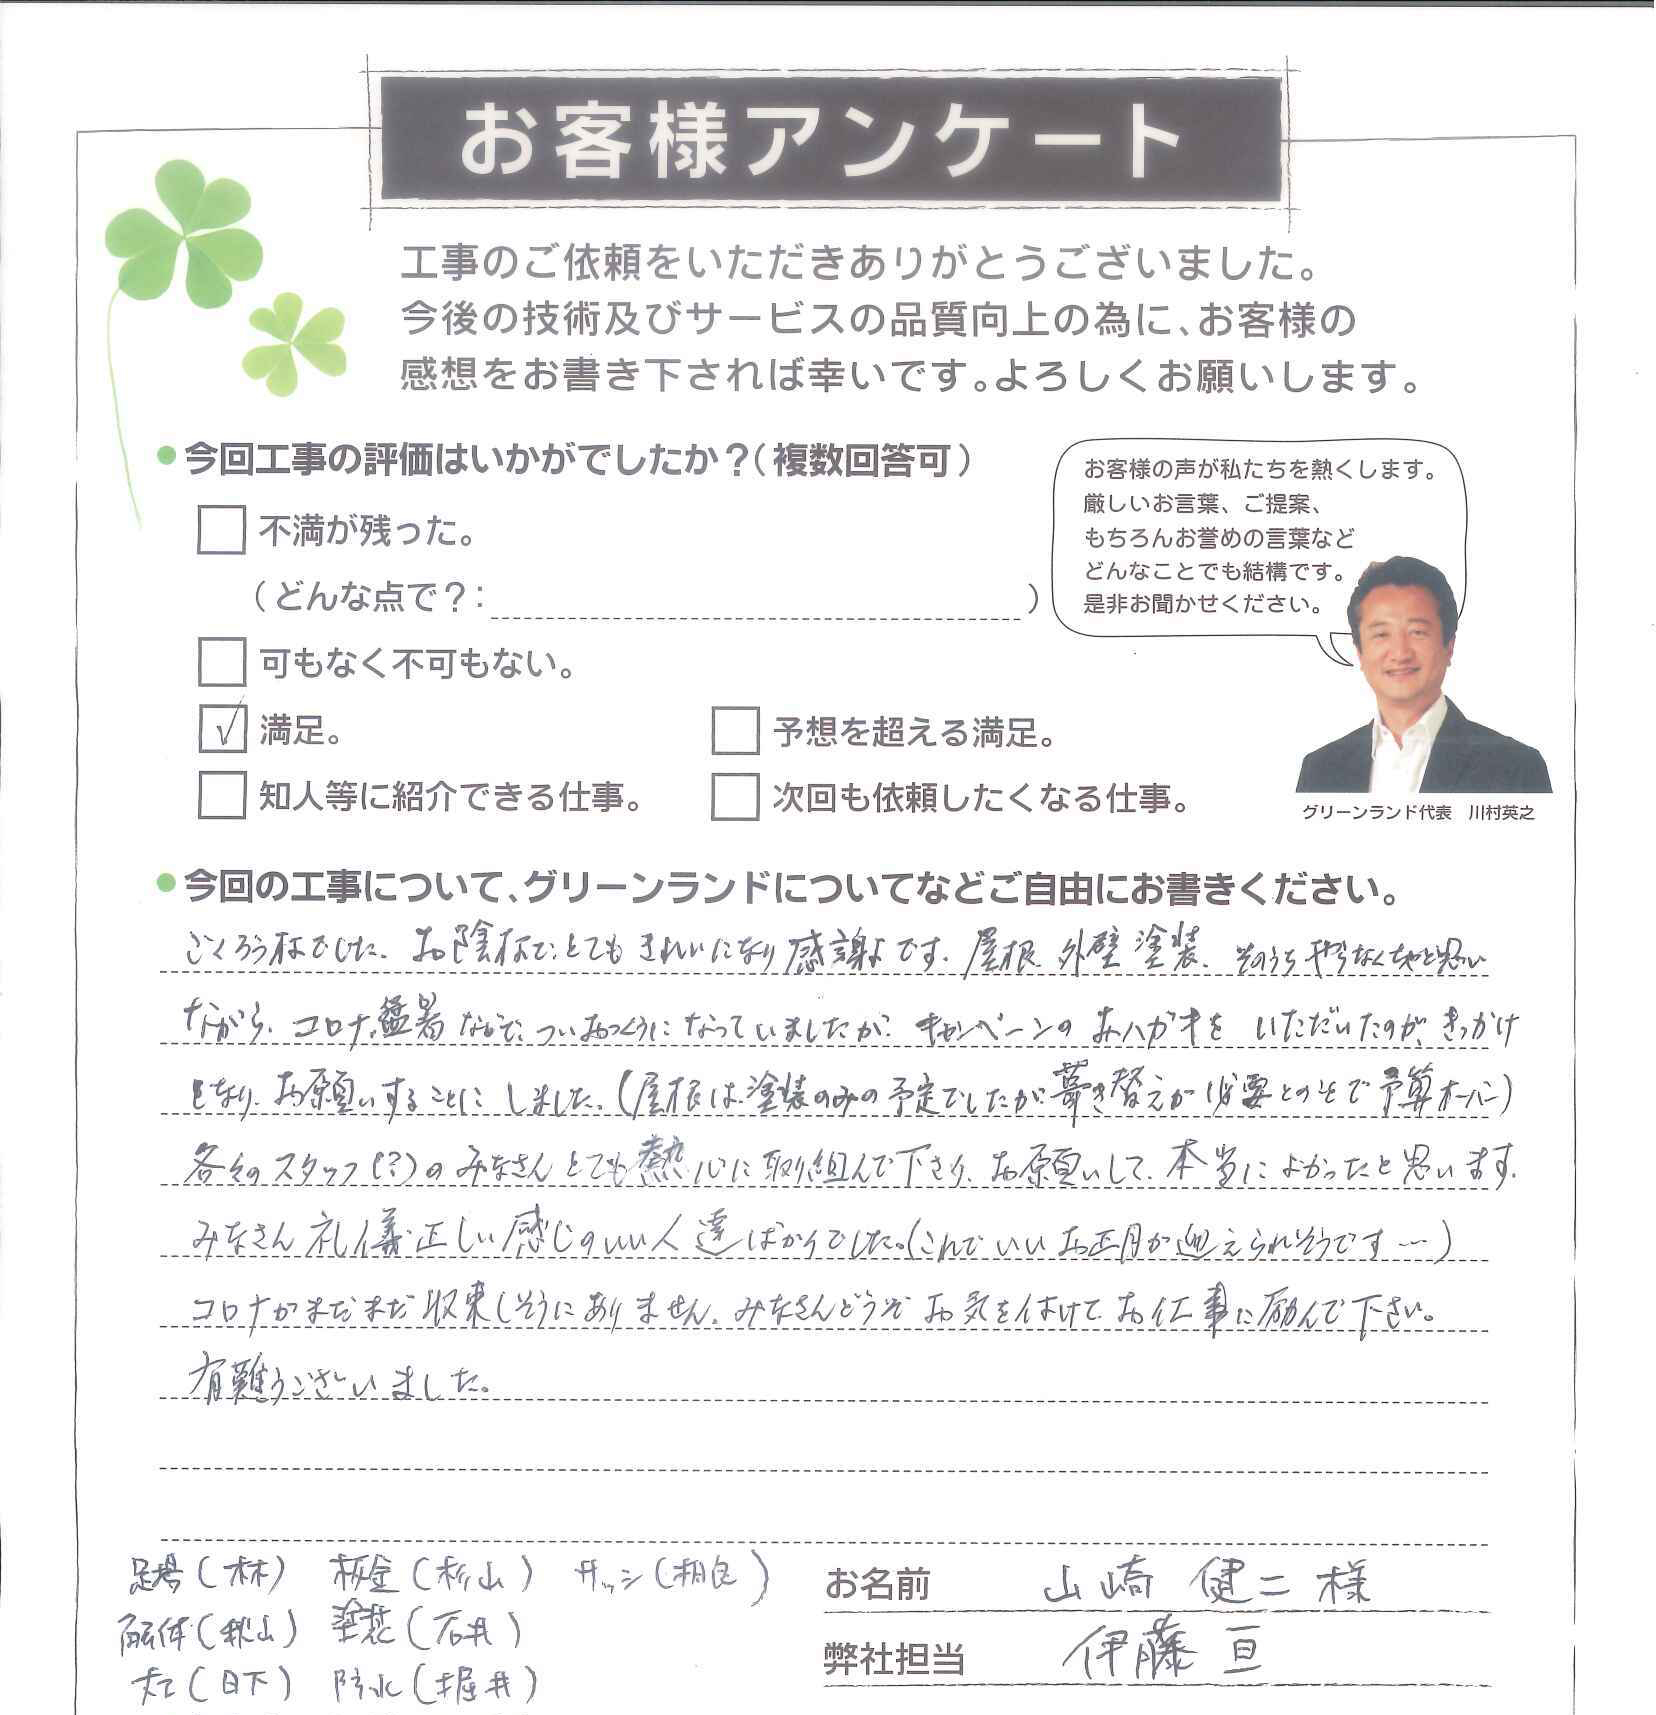 お客様アンケート
工事のご依頼をいただきありがとうございました。
今後の技術及びサービスの品質向上の為に、お客様の
感想をお書き下されば幸いです。よろしくお願いします。
今回工事の評価はいかがでしたか？（複数回答可）
不満が残った。
（どんな点で？：　）
可もなく不可もない。
✓ 満足。
予想を超える満足。
知人等に紹介できる仕事。
次回も依頼したくなる仕事。
お客様の声が私たちを熱くします。
厳しいお言葉、ご提案、
もちろんお誉めの言葉など
どんなことでも結構です。
是非お聞かせください。
グリーンランド代表　川村英之
今回の工事について、グリーンランドについてなどご自由にお書きください。
ごくろう様でした。お陰様で、とてもきれいになり感謝です。屋根、外壁塗装、そのうちやらなくちゃと思い
ながら、コロナ、猛暑などで、ついおっくうになっていましたが、キャンペーンのおハガキをいただいたのが、きっかけ
となり、お願いすることにしました。（屋根は塗装のみの予定でしたが葺き替えが必要とのことで予算オーバー）
各々のスタッフ（？）のみなさんとても熱心に取り組んで下さり、お願いして、本当によかったと思います。
みなさん礼儀正しい感じのいい人達ばかりでした。（これでいいお正月が迎えられそうです…）
コロナがまだまだ収束しそうにありません。みなさんどうぞお気を付けてお仕事に励んで下さい。
有難うございました。
足場（林）　板金（杉山）　サッシ（相良）
解体（秋山）　塗装（石井）
大工（日下）　防水（堀井）
お名前　山崎 健二 様
弊社担当　伊藤 亘